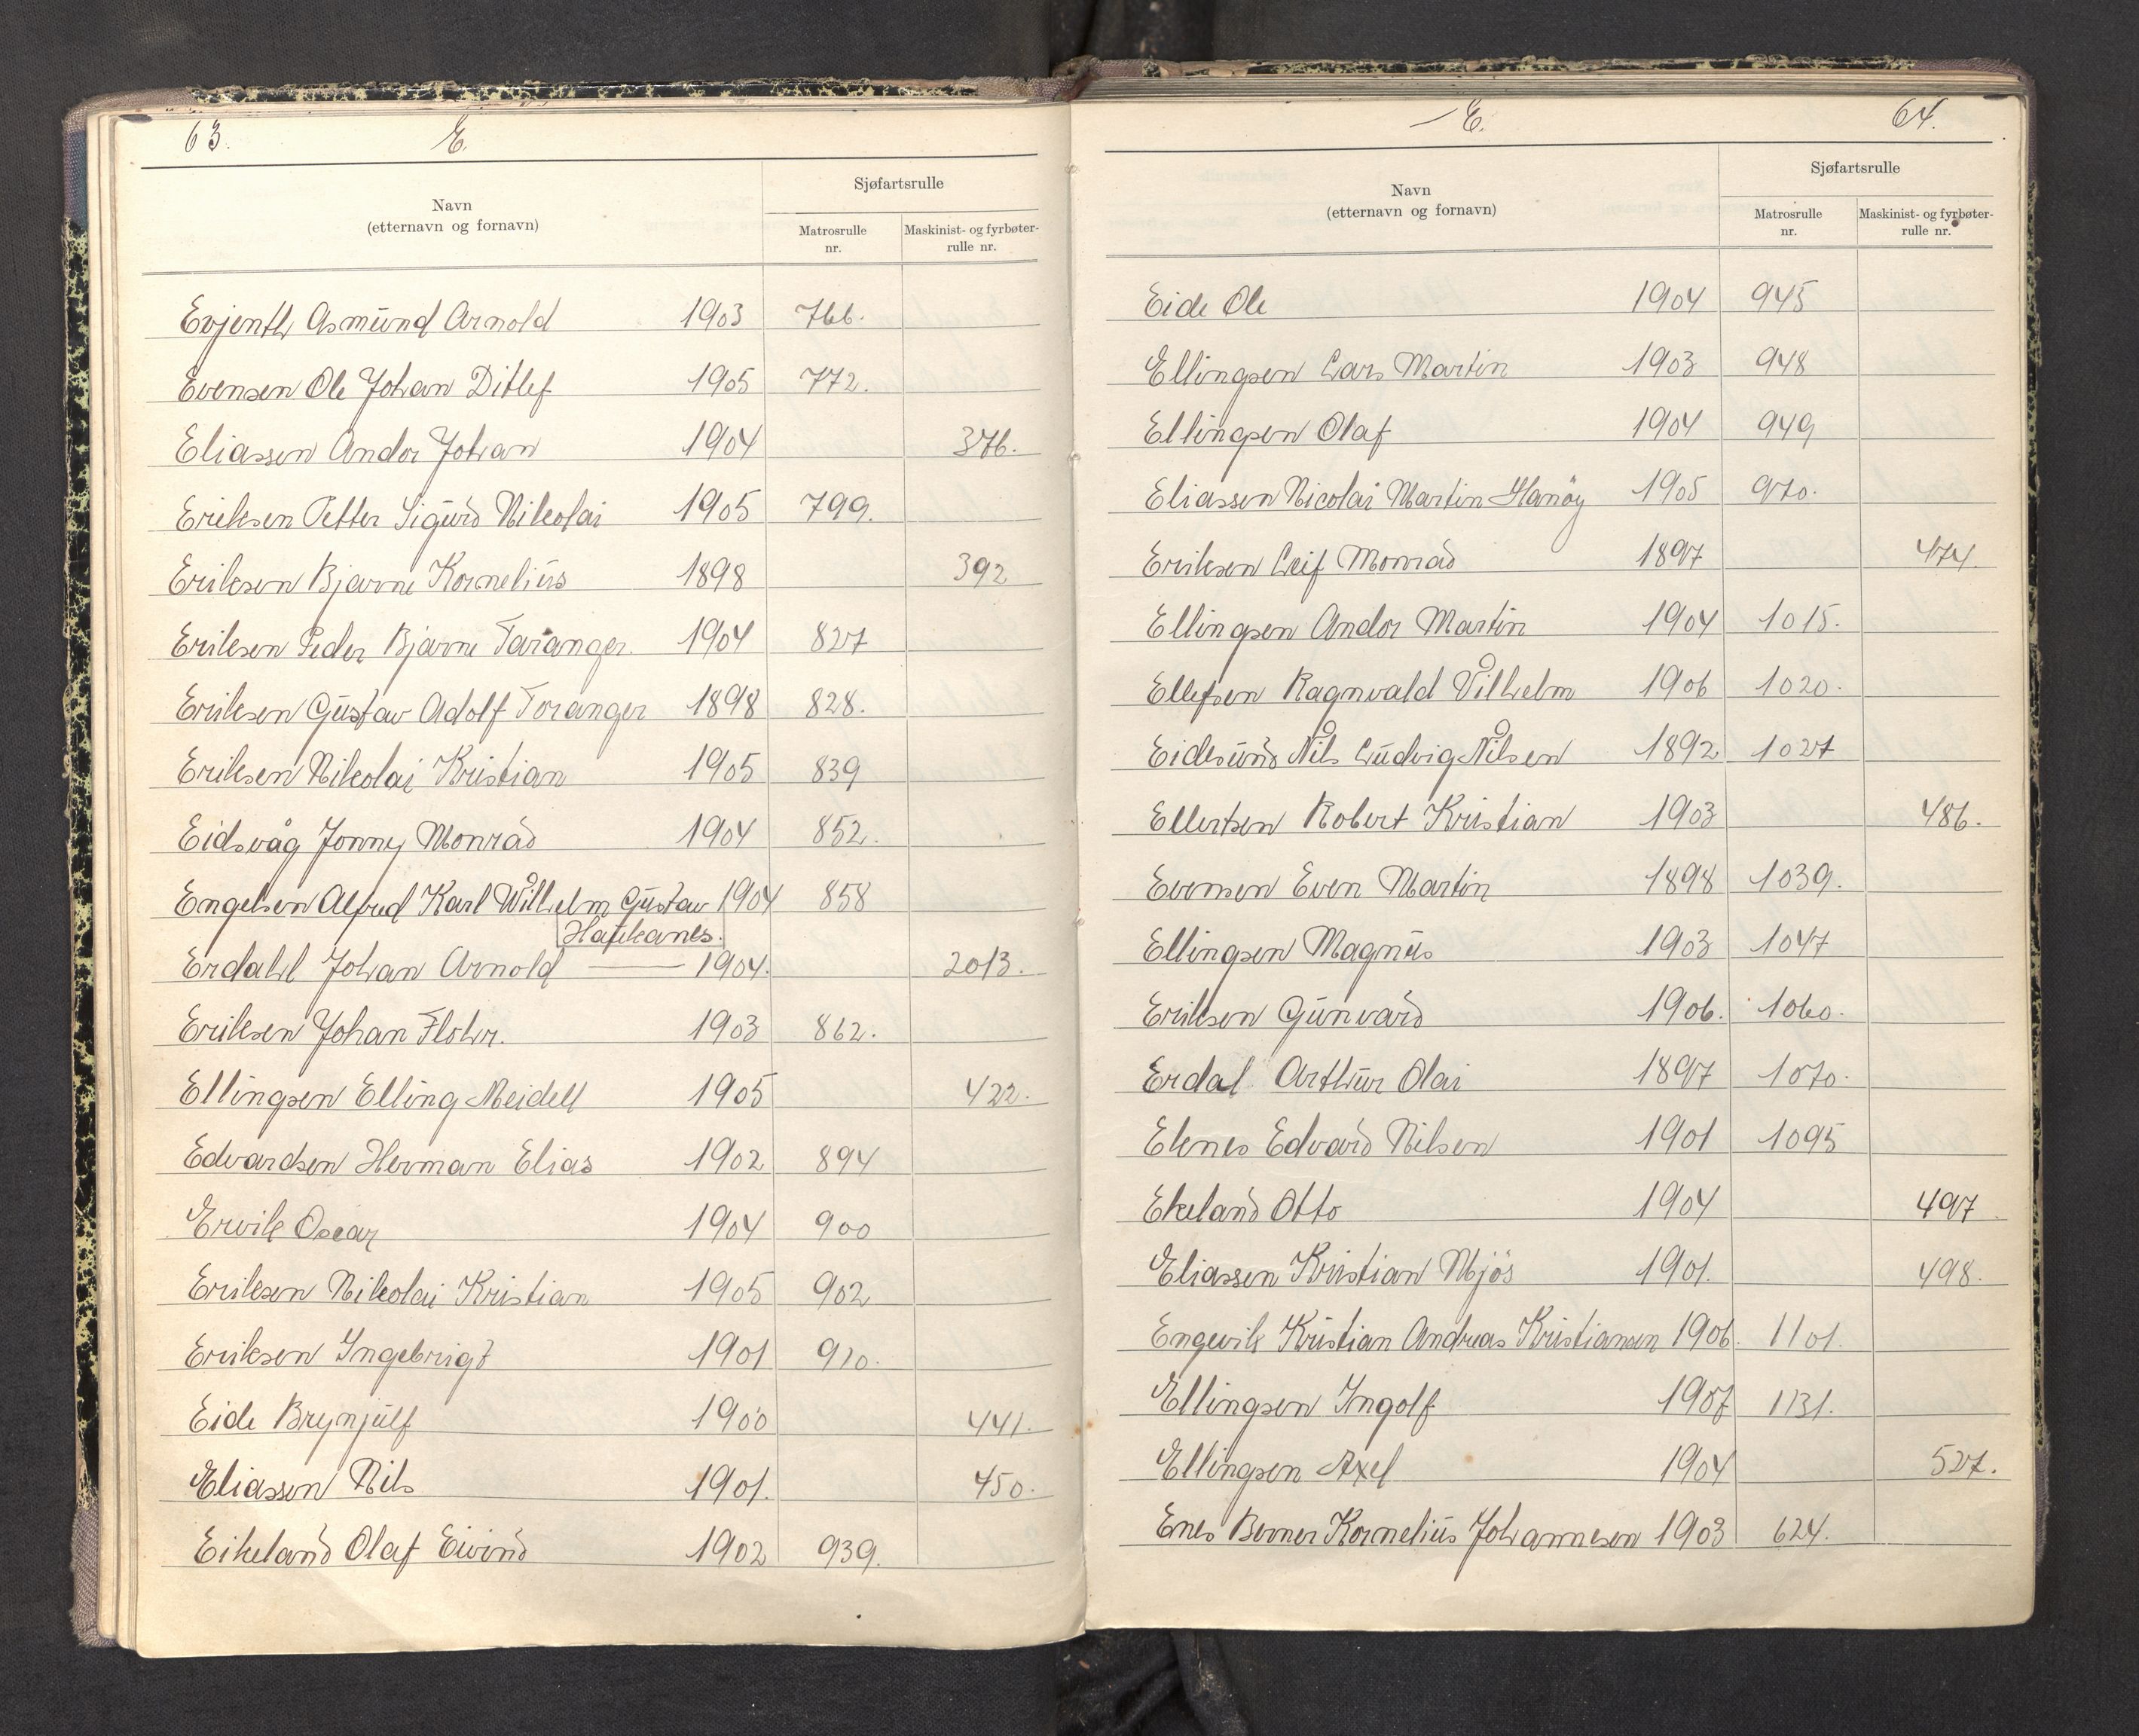 63. E.
Navn
(etternavn og fornavn)
Sjøfartsrulle
Matrosrulle
nr.
Maskinist- og fyrbøter-
rulle nr.
Evjenth Asmund Arnold 1903 766.
Evensen Ole Johan Ditlef 1905 772.
Eliassen Andor Johan 1904 376.
Eriksen Petter Sigurd Nikolai 1905 799.
Eriksen Bjarne Kornelius 1898 392
Eriksen Peder Bjarne Taranger. 1904 827
Eriksen Gustav Adolf Toranger 1898 828.
Eriksen Nikolai Kristian 1905 839
Eidsvåg Jonny Monrad 1904 852.
Engelsen Alfred Karl Wilhelm Gustav 1904 858
Haukanes.
Erdahl Johan Arnold — 1904. 2013.
Eriksen Johan Flohr. 1903 862.
Ellingsen Elling Meidell 1905 422.
Edvardsen Herman Elias 1902 894
Ervik Oscar 1904 900
Eriksen Nikolai Kristian 1905 902
Eriksen Ingebrigt 1901 910.
Eide Brynjulf 1900 441.
Eliassen Nils 1901. 450.
Eikeland Olaf Eivind 1902 939.
— E. 64.
Navn
(etternavn og fornavn)
Sjøfartsrulle
Matrosrulle
nr.
Maskinist- og fyrbøter-
rulle nr.
Eide Ole 1904 945
Ellingsen Lars Martin 1903 948
Ellingsen Olaf 1904 949
Eliassen Nicolai Martin Hanöy 1905 970.
Eriksen Leif Monrad 1897 474.
Ellingsen Andor Martin 1904 1015.
Ellefsen Ragnvald Vilhelm 1906 1020.
Eidesund Nils Ludvig Nilsen 1892 1027
Ellertsen Robert Kristian 1903 486.
Evensen Even Martin 1898 1039.
Ellingsen Magnus 1903 1047
Eriksen Gunvard 1906. 1060.
Erdal Arthur Olai 1897 1070.
Eknes Edvard Nilsen 1901 1095
Ekeland Otto 1904 497.
Eliassen Kristian Mjös 1901. 498.
Engevik Kristian Andreas Kristiansen 1906. 1101.
Ellingsen Ingolf 1907 1131.
Ellingsen Axel 1904 527.
Enes Berner Kornelius Johannesen 1903 624.